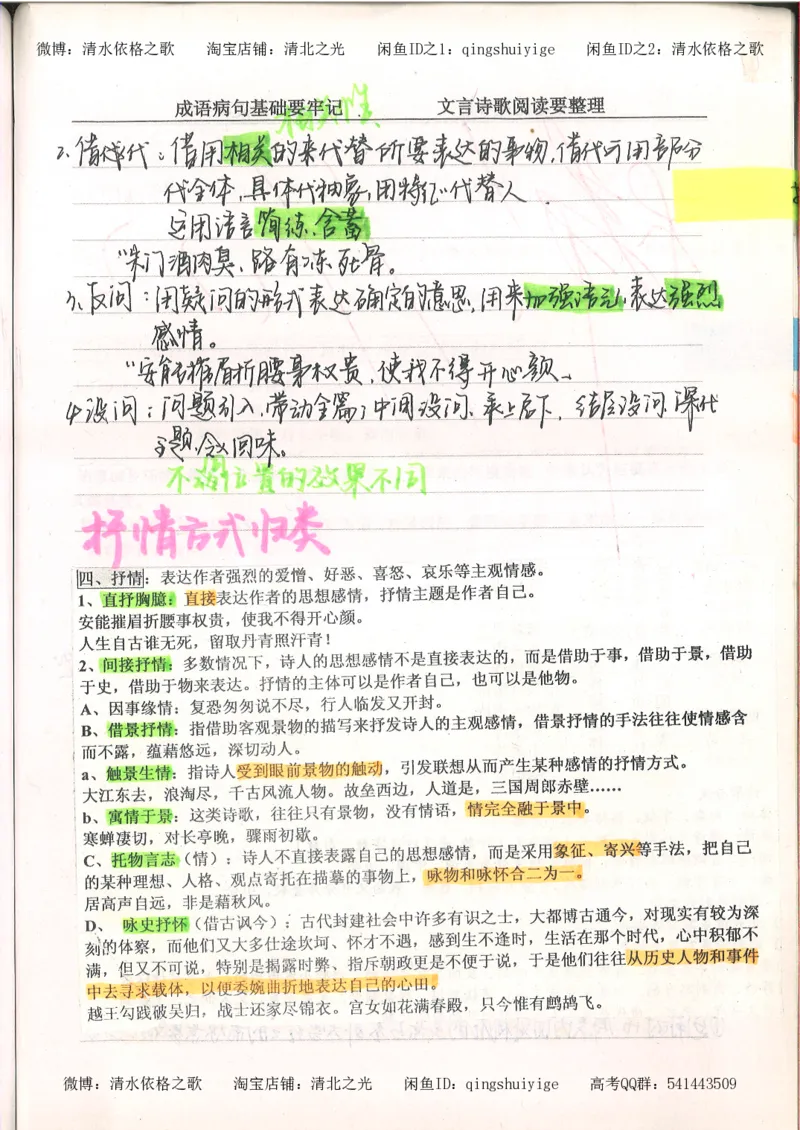 微博：清水依格之歌 淘宝店铺：清北之光 闲鱼ID之1：qingshuiyige 闲鱼ID之2：清水依格之歌
成语病句基础要牢记 文言诗歌阅读要整理
相关性
2、借代：借用相关的来代替所要表达的事物，借代可用部分
代全体，具体代抽象，用特征代替人．
运用语言简练、含蓄
“朱门酒肉臭，路有冻死骨。
3、反问：用疑问的形式表达确定的意思，用来加强语气，表达强烈
感情。
“安能摧眉折腰事权贵，使我不得开心颜、
4、设问：问题引入，带动全篇；中间设问、承上启下，结尾设问，深化
主题，令人回味。
不同位置的效果不同
抒情方式归类
四、抒情：表达作者强烈的爱憎、好恶、喜怒、哀乐等主观情感。
1、直抒胸臆：直接表达作者的思想感情，抒情主题是作者自己。
安能摧眉折腰事权贵，使我不得开心颜。
人生自古谁无死，留取丹青照汗青！
2、间接抒情：多数情况下，诗人的思想感情不是直接表达的，而是借助于事，借助于景，借助
于史，借助于物来表达。抒情的主体可以是作者自己，也可以是他物。
A、因事缘情：复恐匆匆说不尽，行人临发又开封。
B、借景抒情：指借助客观景物的描写来抒发诗人的主观感情，借景抒情的手法往往使情感含
而不露，蕴藉悠远，深切动人。
a、触景生情：指诗人受到眼前景物的触动，引发联想从而产生某种感情的抒情方式。
大江东去，浪淘尽，千古风流人物。故垒西边，人道是，三国周郎赤壁……
b、寓情于景：这类诗歌，往往只有景物，没有情语，情完全融于景中。
寒蝉凄切，对长亭晚，骤雨初歇。
C、托物言志（情）：诗人不直接表露自己的思想感情，而是采用象征、寄兴等手法，把自己
的某种理想、人格、观点寄托在描摹的事物上，咏物和咏怀合二为一。
居高声自远，非是藉秋风。
D、 咏史抒怀（借古讽今）：古代封建社会中许多有识之士，大都博古通今，对现实有较为深
刻的体察，而他们又大多仕途坎坷、怀才不遇，感到生不逢时，生活在那个时代，心中积郁不
满，但又不可说，特别是揭露时弊、指斥朝政更是不便于说，于是他们往往从历史人物和事件
中去寻求载体，以便委婉曲折地表达自己的心田。
越王勾践破吴归，战士还家尽锦衣。宫女如花满春殿，只今惟有鹧鸪飞。
微博：清水依格之歌 淘宝店铺：清北之光 闲鱼ID：qingshuiyige 高考QQ群：541443509